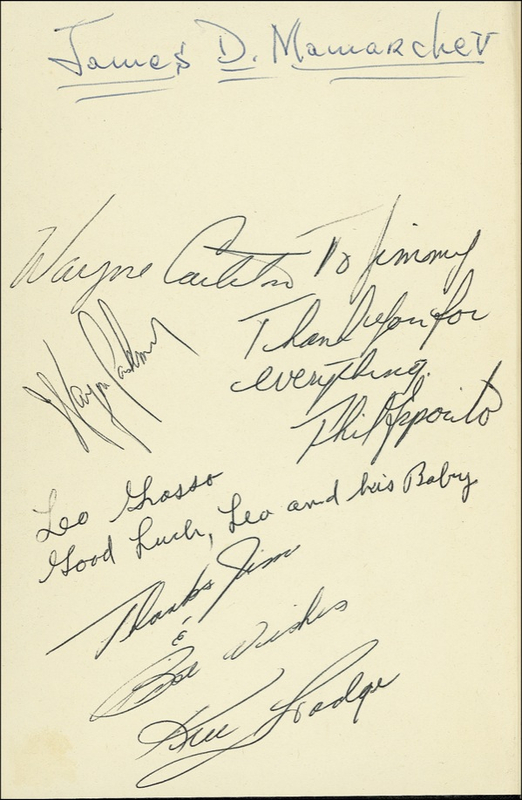 James D. Mamarchev
Wayne Carleton
To Jimmy
Thank you for
everything.
Phil Esposito
Wayne Cashman
Leo Grasso
Good Luck, Leo and his Baby
Thanks Jim
&
Best Wishes
Ken Hodge